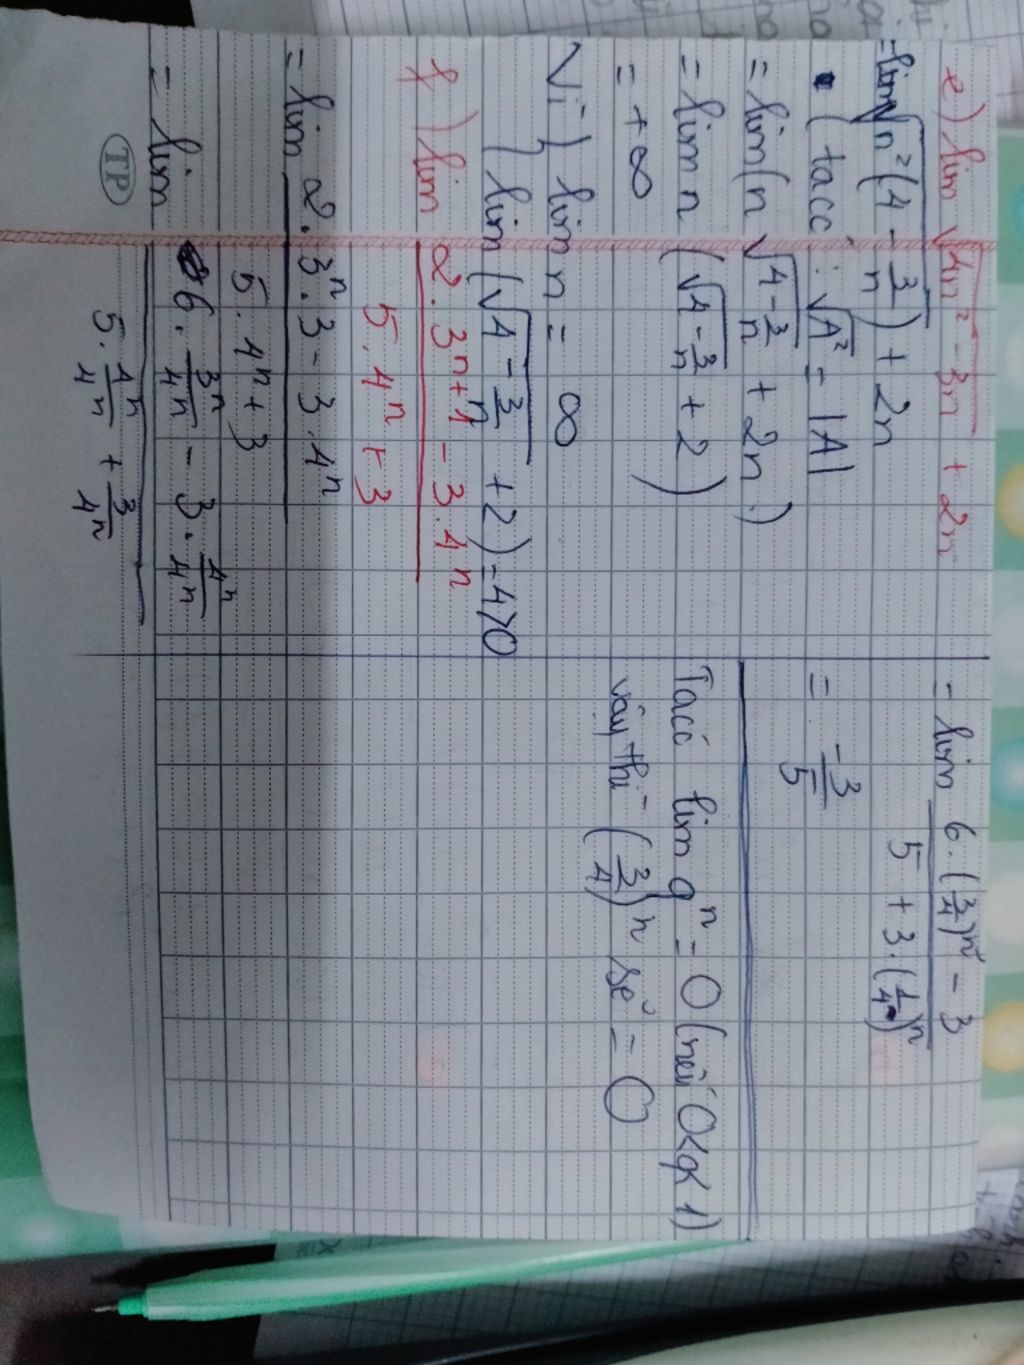 e) lim √4n² - 3n + 2n
= lim √n²(4 - 3/n) + 2n
( ta có : √A² = |A|
= lim (n √4 - 3/n + 2n )
= lim n (√4 - 3/n + 2)
= +∞
Vì { lim n = ∞
lim (√4 - 3/n + 2) = 4 > 0
f) lim 2.3ⁿ⁺¹ - 3.4ⁿ / 5.4ⁿ + 3
= lim 2.3ⁿ.3 - 3.4ⁿ / 5.4ⁿ + 3
= lim 6. 3ⁿ/4ⁿ - 3. 4ⁿ/4ⁿ / 5. 4ⁿ/4ⁿ + 3/4ⁿ
TP
= lim 6.(3/4)ⁿ - 3 / 5 + 3.(1/4)ⁿ
= -3/5
Ta có lim qⁿ = 0 (nếu 0<q<1)
vậy thì (3/4)ⁿ sẽ = 0